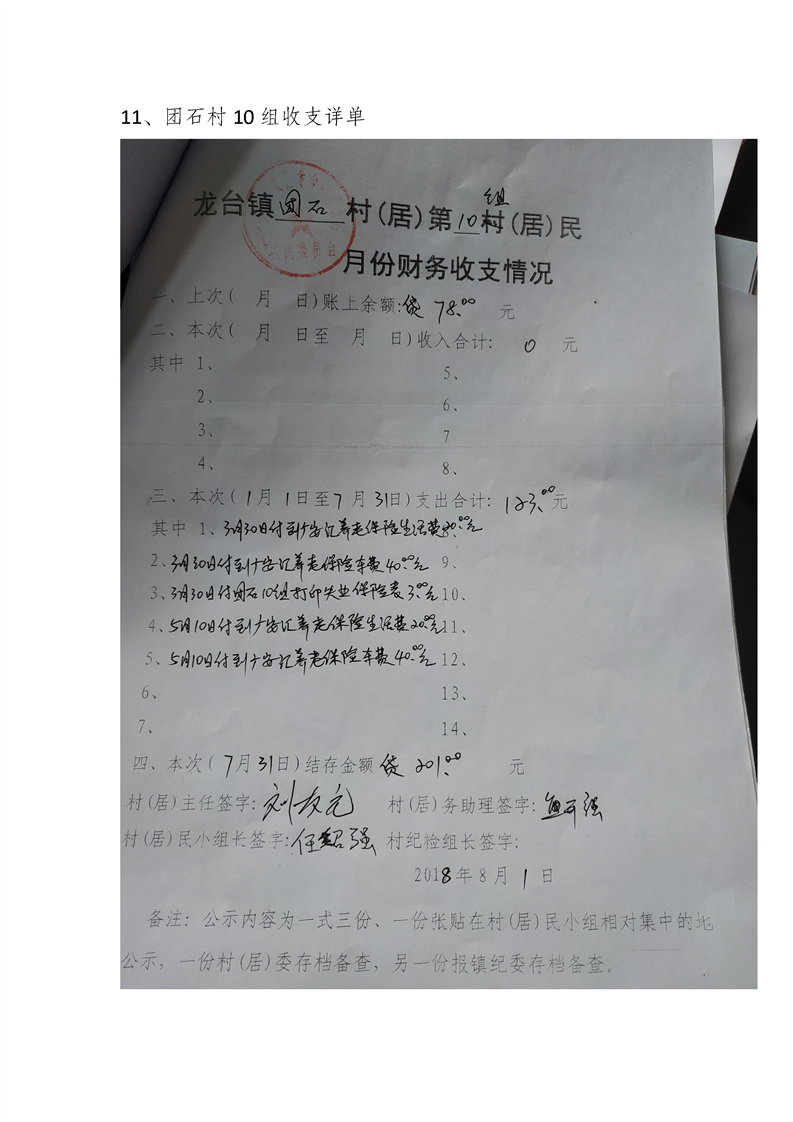 11、团石村 10 组收支详单
组
龙台镇 团石 村(居)第 10 村(居)民
月份财务收支情况
一、上次( 月 日)账上余额: 贷 78.00 元
二、本次( 月 日至 月 日)收入合计: 0 元
其中 1、 5、
2、 6、
3、 7
4、 8、
三、本次( 1月 1日至 7 月 31日)支出合计: 123.00 元
其中 1、3月30日付到广安汇养老保险生活费20.00元
2、3月30日付到广安汇养老保险车费40.00元 9、
3、3月30日付团石10组打印失业保险表3.00元 10、
4、5月10日付到广安汇养老保险生活费20.00元 11、
5、5月10日付到广安汇养老保险车费40.00元 12、
6、 13、
7、 14、
四、本次( 7月 31日)结存金额 贷 201.00 元
村(居)主任签字: 刘友元 村(居)务助理签字:
村(居)民小组长签字: 任绍强 村纪检组长签字:
2018年 8 月 1 日
备注: 公示内容为一式三份、一份张贴在村(居)民小组相对集中的地
公示, 一份村(居)委存档备查, 另一份报镇纪委存档备查。